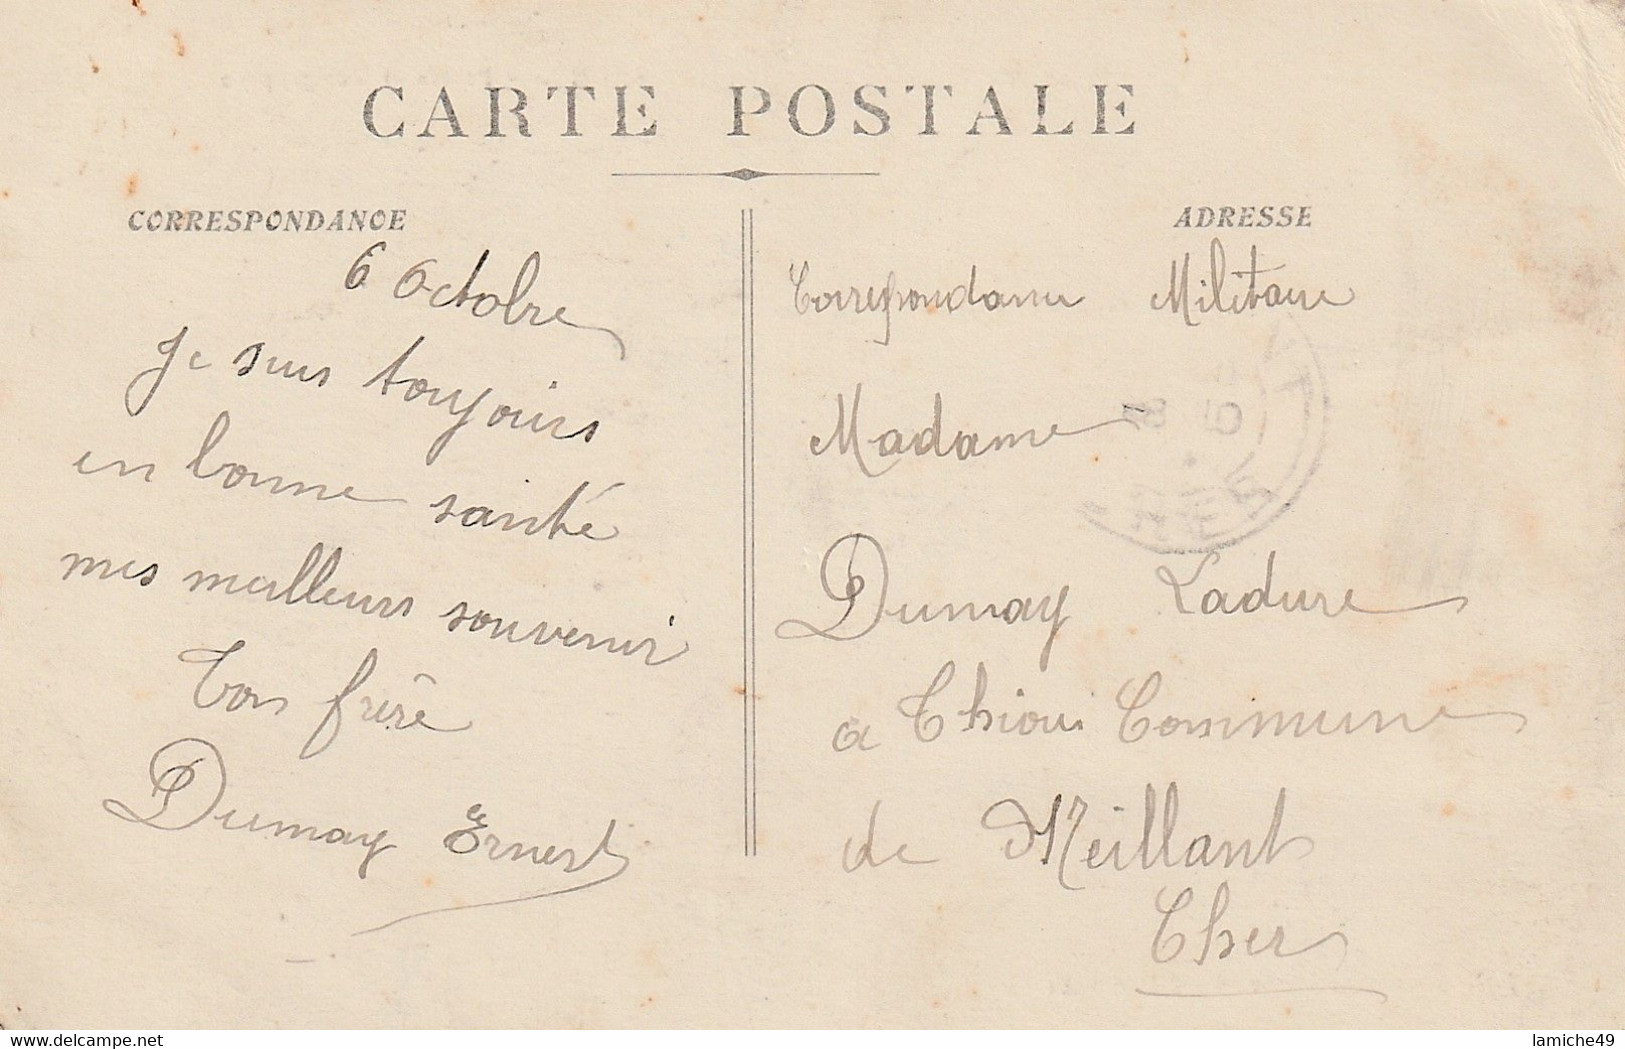 CARTE POSTALE
CORRESPONDANCE
6 Octobre
Je suis toujours
en bonne santé
mes meilleurs souvenir
Ton frère
Dumay Ernest
ADRESSE
Correspondance Militaire
Madame
Dumay Ladure
a Thiou Commune
de Meillant
Cher
delcampe.net
lamiche49